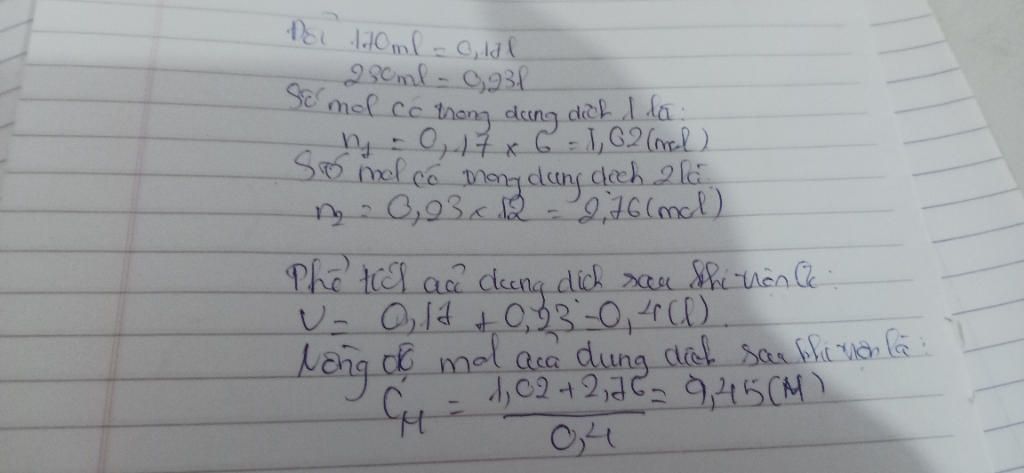 Đổi 170ml = 0,17l
230ml = 0,23l
Số mol có trong dung dịch 1 là:
n₁ = 0,17 x 6 = 1,02 (mol)
Số mol có trong dung dịch 2 là
n₂ = 0,23 x 12 = 2,76 (mol)
Thể tích của dung dịch sau khi trộn là:
V = 0,17 + 0,23 = 0,4 (l)
Nồng độ mol của dung dịch sau khi trộn là:
C_M = (1,02 + 2,76)/0,4 = 9,45 (M)